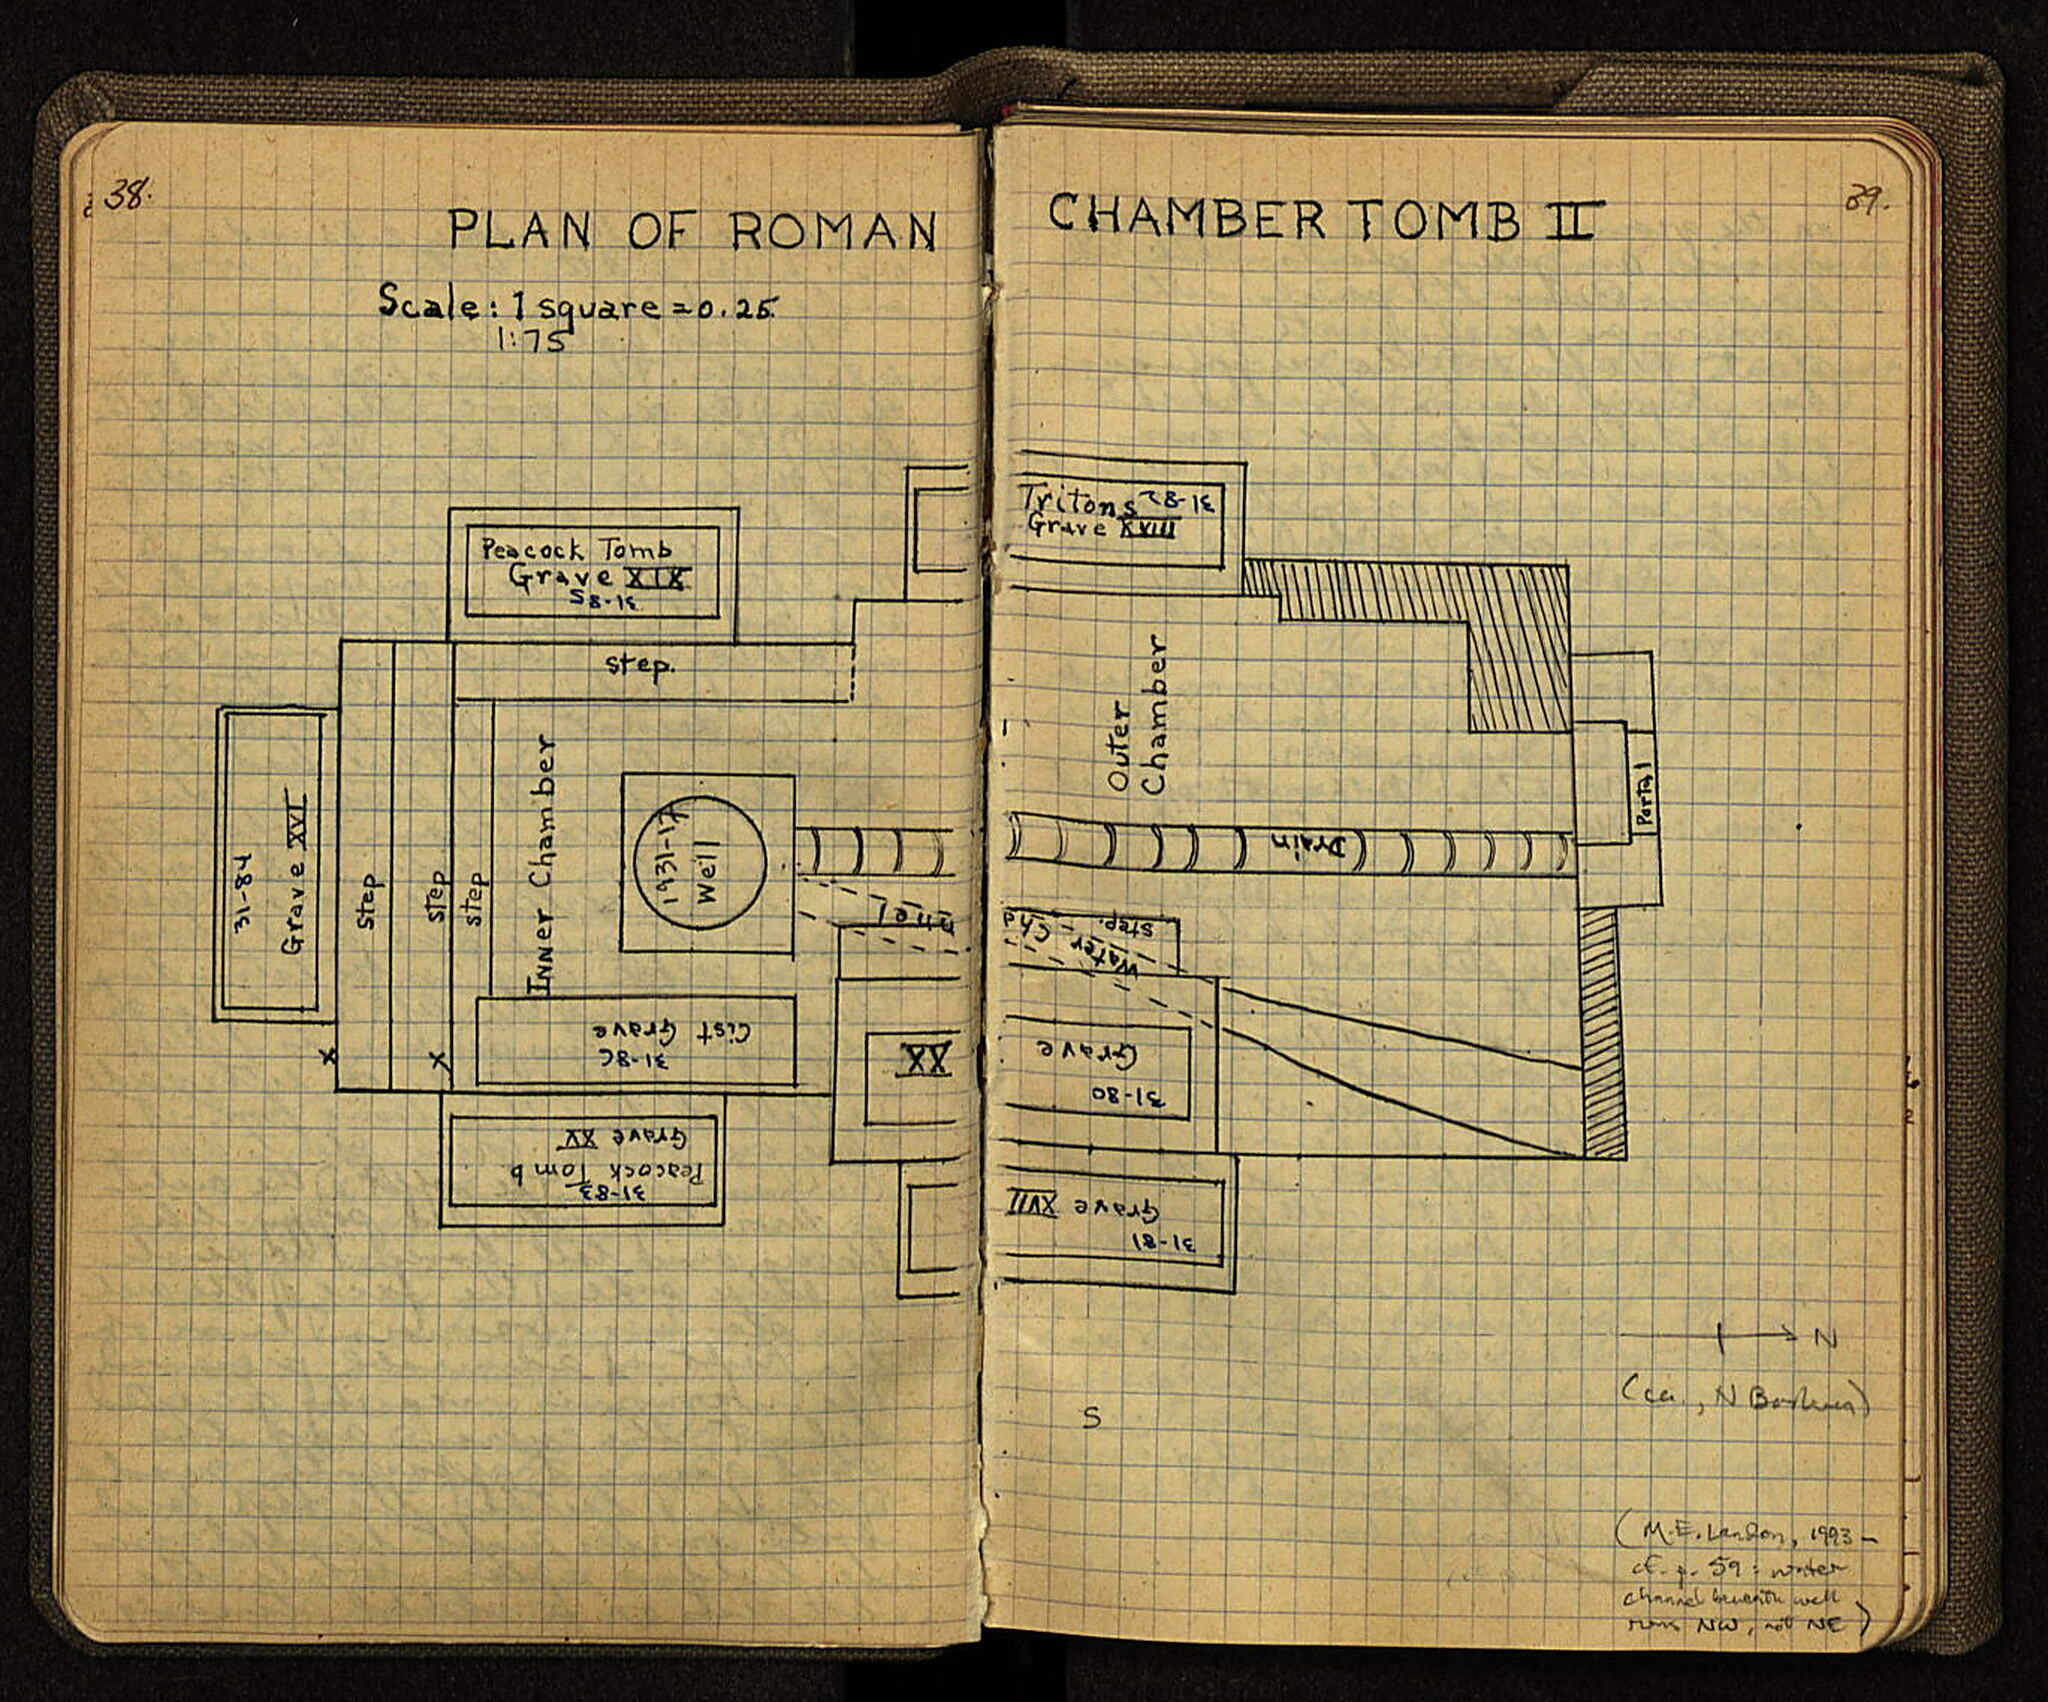 38.
PLAN OF ROMAN
Scale: 1 square = 0.25
1:75
Peacock Tomb
Grave XIX
31-85
step.
31-84
Grave XVI
step
step
step
INNER Chamber
1931-17
Well
nnel
x
x
Cist Grave
31-86
XX
Grave XV
Peacock Tomb
31-83
39.
CHAMBER TOMB II
Tritons 31-82
Grave XVIII
Outer
Chamber
Portal
Drain
step.
Water Cha
Grave
31-80
Grave XVII
31-81
N
S
(M.E. Landon, 1993 –
cf. p. 59: water
channel beneath well
runs NW, not NE)